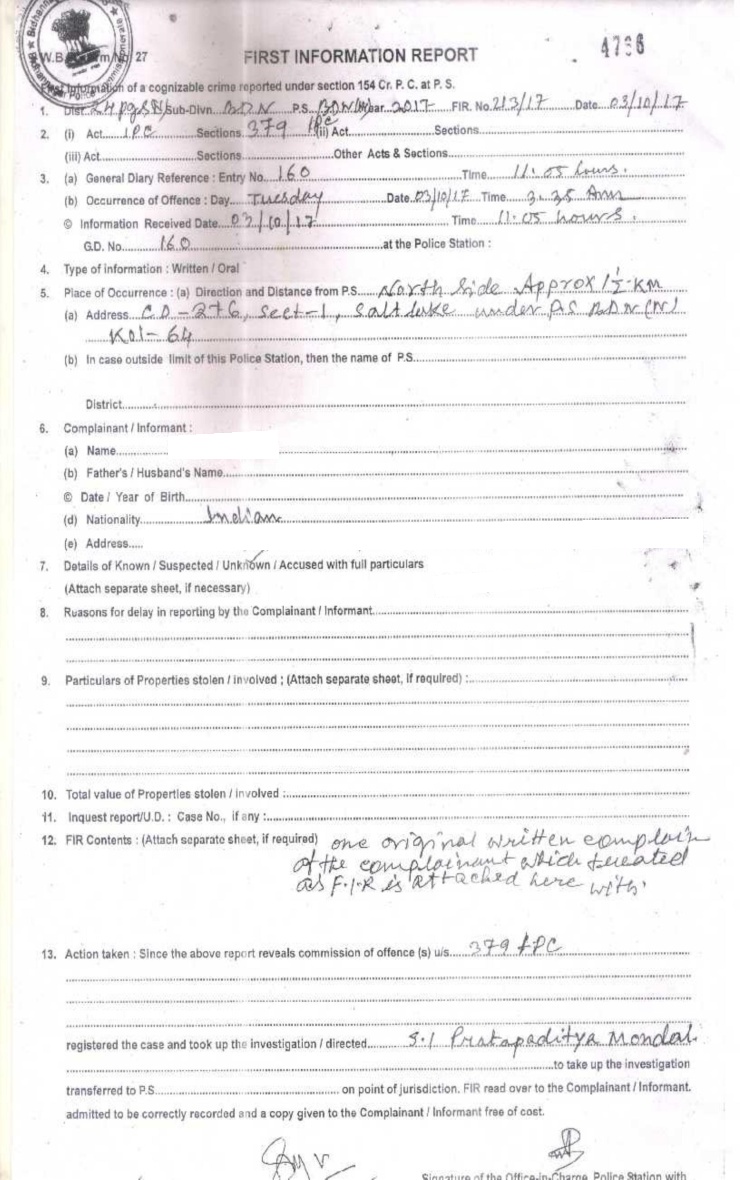 4736
W.B. Form No. 27
FIRST INFORMATION REPORT
First Information of a cognizable crime reported under section 154 Cr. P. C. at P. S.
1. Dist. 24 pgs(N) Sub-Divn. BDN P.S. BDN(N) Year 2017 FIR. No. 213/17 Date 03/10/17
2. (i) Act IPC Sections 379 IPC (ii) Act Sections
(iii) Act Sections Other Acts & Sections
3. (a) General Diary Reference : Entry No. 160 Time 11:05 hours.
(b) Occurrence of Offence : Day Tuesday Date 03/10/17 Time 3.35 Am
© Information Received Date 03/10/17 Time 11:05 hours.
G.D. No. 160 at the Police Station :
4. Type of information : Written / Oral
5. Place of Occurrence : (a) Direction and Distance from P.S. North Side Approx 1½ KM
(a) Address C.D-276, Sect-1, Salt lake under PS BDN (N)
Kol-64
(b) In case outside limit of this Police Station, then the name of P.S.
District
6. Complainant / Informant :
(a) Name
(b) Father's / Husband's Name
© Date / Year of Birth
(d) Nationality Indian
(e) Address
7. Details of Known / Suspected / Unknown / Accused with full particulars
(Attach separate sheet, if necessary)
8. Reasons for delay in reporting by the Complainant / Informant
9. Particulars of Properties stolen / involved ; (Attach separate sheet, if required) :
10. Total value of Properties stolen / involved :
11. Inquest report/U.D. : Case No., if any :
12. FIR Contents : (Attach separate sheet, if required) one original written complain
of the complainant which treated
as F.I.R is attached here with.
13. Action taken : Since the above report reveals commission of offence (s) u/s 379 IPC
registered the case and took up the investigation / directed S.I Pratapaditya Mondal.
to take up the investigation
transferred to P.S. on point of jurisdiction. FIR read over to the Complainant / Informant.
admitted to be correctly recorded and a copy given to the Complainant / Informant free of cost.
Signature of the Office-in-Charge, Police Station with